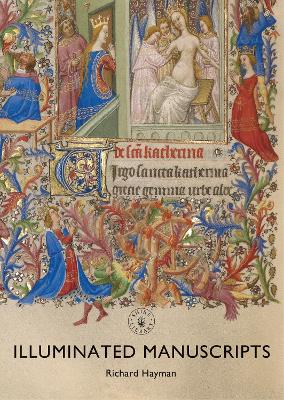 de sc̃a katherina
Virgo sancta katherina
grecie gemma urbe alex
SHIRE
LIBRARY
ILLUMINATED MANUSCRIPTS
Richard Hayman